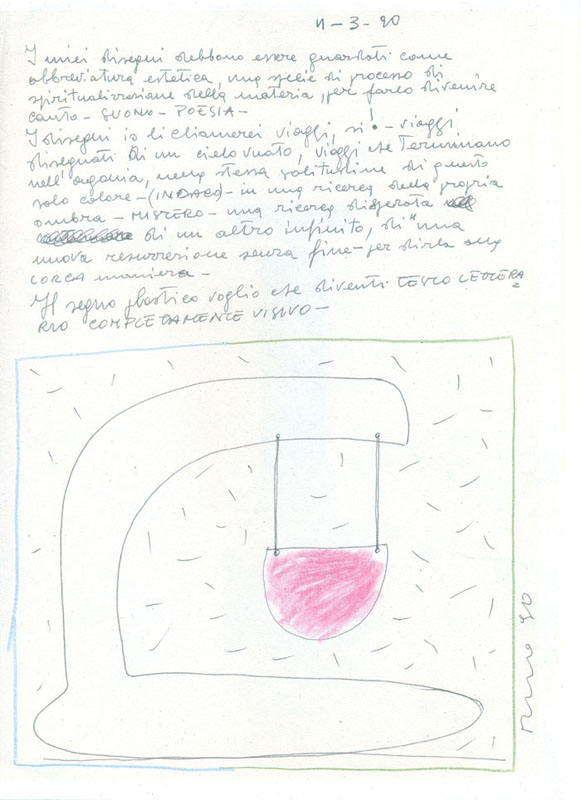 11-3-90
I miei disegni debbono essere guardati come
abbreviatura estetica, una specie di processo di
spiritualizzazione della materia, per farlo divenire
canto - SUONO - POESIA -
I disegni io li chiamerei viaggi, si! - viaggi
disegnati di un cielo vuoto, viaggi che Terminano
nell'agonia, nella stessa solitudine di questo
solo colore - (INDACO) - in una ricerca della propria
ombra - MISTERO - una ricerca disperata
di un altro infinito, di "una
nuova resurrezione senza fine - per dirla alla
LORCA maniera -
Il segno plastico voglio che diventi TESTO LETTERA=
RIO COMPLETAMENTE VISIVO -
90